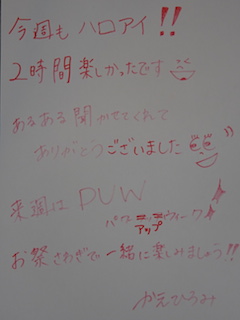 今週も ハロアイ!!
2時間楽しかったです
あるある聞かせてくれて
ありがとうございました
来週は PUW
パワーアップウィーク
お祭さわぎで一緒に楽しみましょう!!
かえひろみ